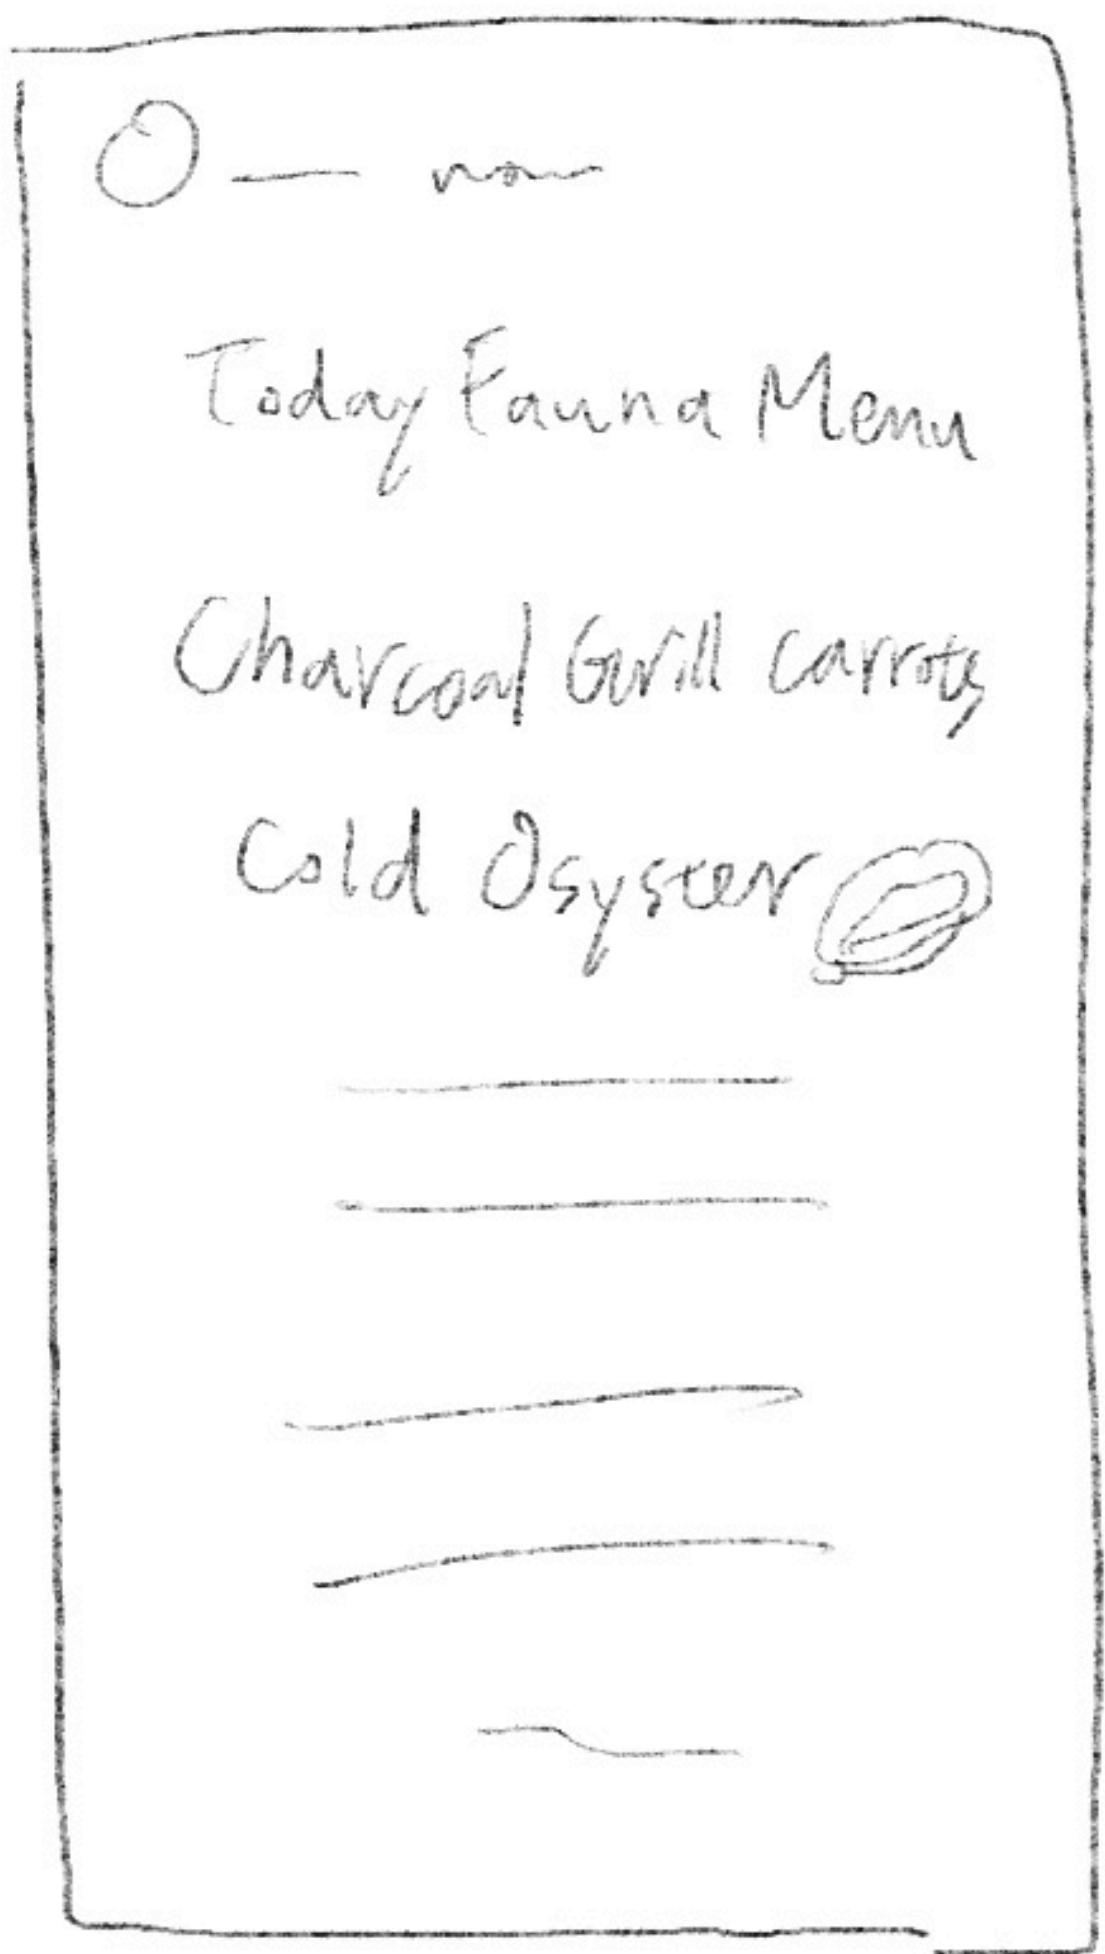 now
Today Fauna Menu
Charcoal Grill carrots
Cold Osyster